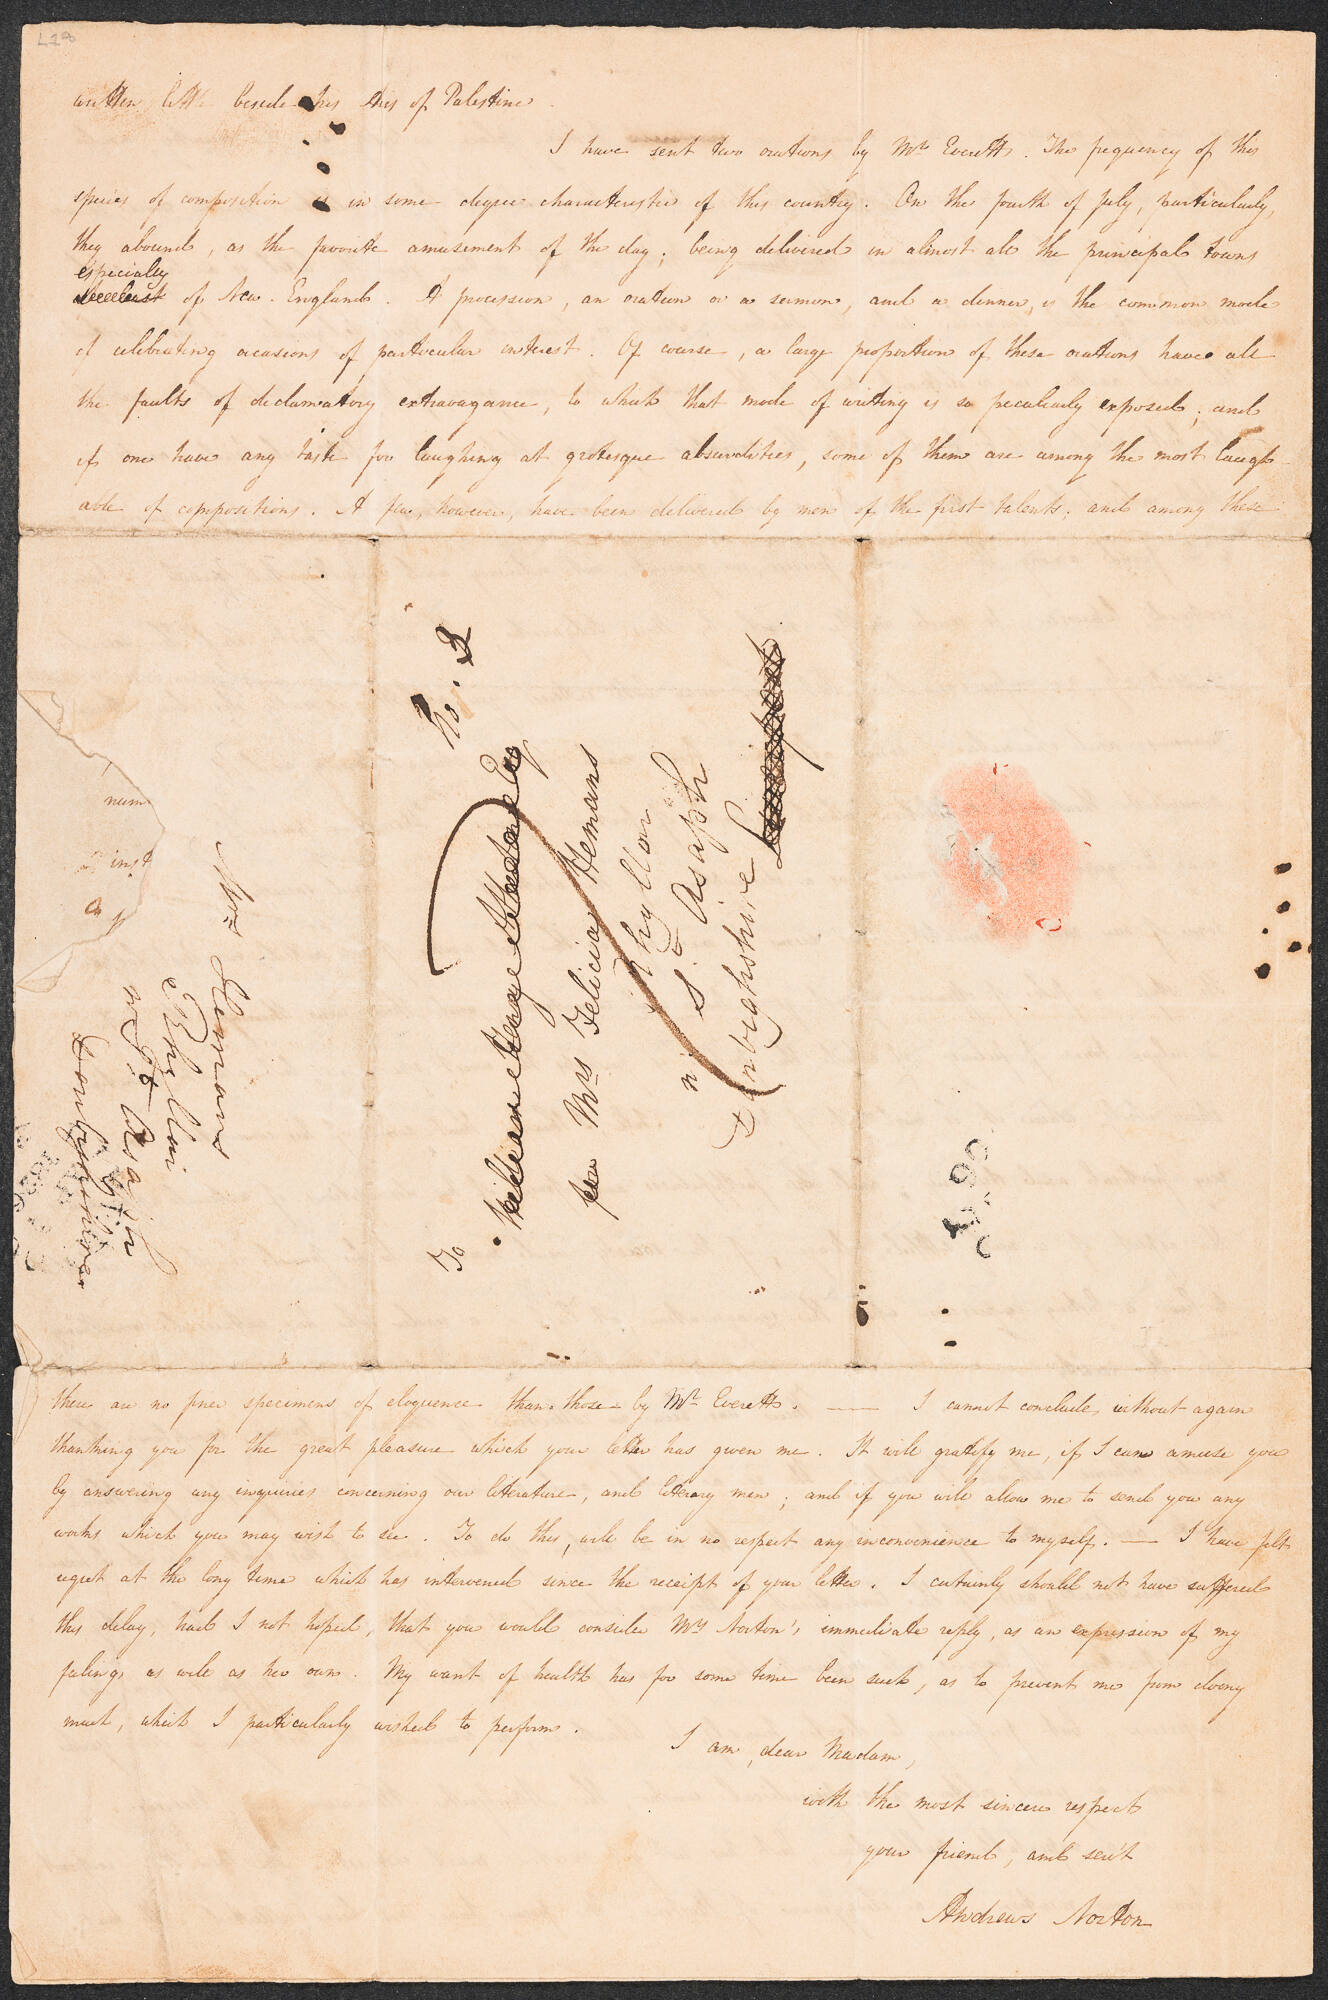 L28
written little beside his this of Palestine.
I have sent two orations by Mr. Everett. The frequency of this
species of composition is in some degree characteristic of this country. On the fourth of July, particularly,
they abound, as the favorite amusement of the day; being delivered in almost all the principal towns
especially
of New-England. A procession, an oration or a sermon, and a dinner, is the common mode
of celebrating occasions of particular interest. Of course, a large proportion of these orations have all
the faults of declamatory extravagance, to which that mode of writing is so peculiarly exposed; and
if one have any taste for laughing at grotesque absurdities, some of them are among the most laugh-
able of compositions. A few, however, have been delivered by men of the first talents; and among these
num
inst
a
Mrs Hemans
Rhyllon
nr St Asaph
Denbighshire
No. 2
To
William George Esq
for Mrs Felicia Hemans
Rhyllon
nr St Asaph
Denbighshire
there are no finer specimens of eloquence than those by Mr. Everett. — I cannot conclude, without again
thanking you for the great pleasure which your letter has given me. It will gratify me, if I can amuse you
by answering any inquiries concerning our literature, and literary men; and if you will allow me to send you any
works which you may wish to see. To do this, will be in no respect any inconvenience to myself. — I have felt
regret at the long time which has intervened since the receipt of your letter. I certainly should not have suffered
this delay, had I not hoped, that you would consider Mrs Norton's immediate reply, as an expression of my
feelings as well as her own. My want of health has for some time been such, as to prevent me from doing
much, which I particularly wished to perform.
I am, dear Madam,
with the most sincere respect
your friend, and serv't
Andrews Norton